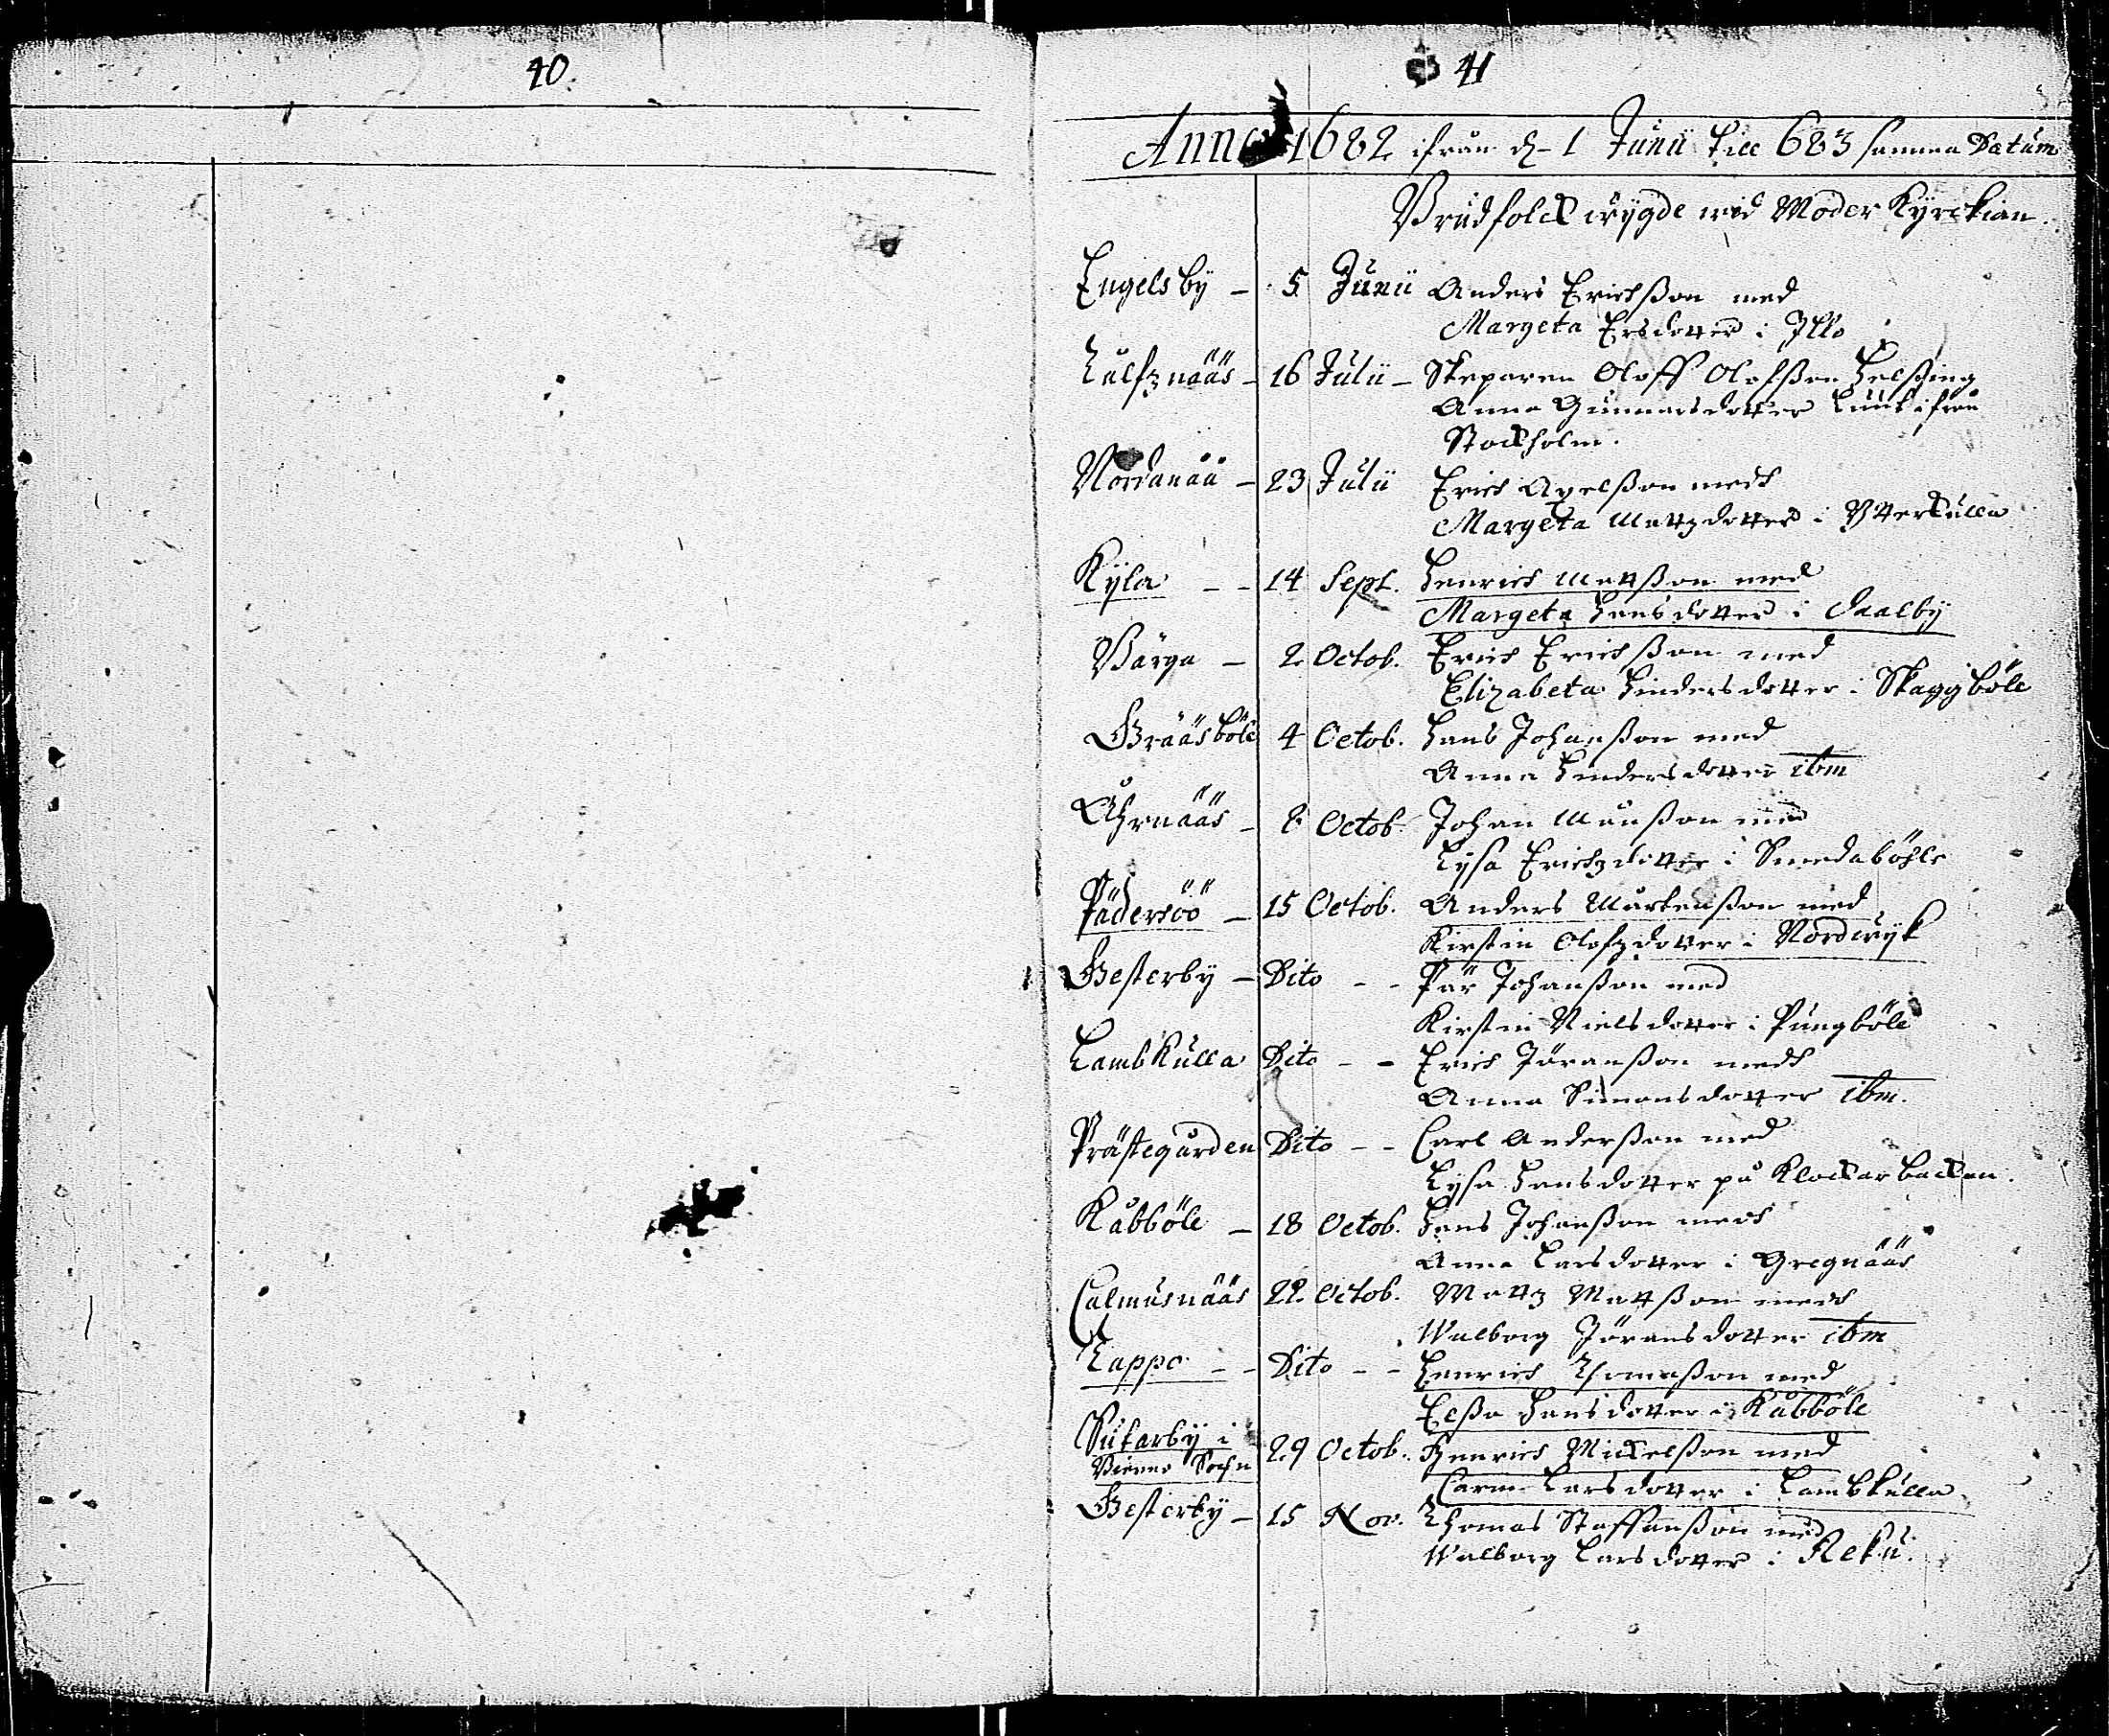 40.
41
Anno 1682 ifrån d. 1 Junii till 683 samma Datum
Brudfolck wygde wid Moder Kyrckian.
Engelsby - 5 Junii Anders Erichßon med
Margeta Ersdotter i Illo
16 Julii - Skeparen Oloff Olofßon Helßing
Anna Gunnarsdotter ifrån
Stockholm.
Nordanåå - 23 Julii Erich Axelßon medh
Margeta Mattzdotter i Ytterkulla
Kyla - - 14 Sept. Henrich Matßon med
Margeta Hansdotter i Daalby
Wärga - 2 Octob. Erich Erichßon med
Elizabeta Hindersdotter i Skaggböle
Grääsböle 4 Octob. Hans Johanßon med
Anna Hindersdotter ibm
8 Octob. Johan Månßon med
Lysa Erichzdotter i Smedaböhle
Pädersöö - 15 Octob. Anders Mårtenßon med
Kirstin Olofzdotter i Nordwyk
Gesterby - Dito - - Pär Johanßon med
Kirstin Nielsdotter i Pungböle
Lambkulla Dito - - Erich Jöranßon medh
Anna Simonsdotter ibm.
Prästegården Dito - - Carl Anderßon med
Lysa Hansdotter på Klockarbacken.
Kåbböle - 18 Octob. Hans Johanßon medh
Anna Larsdotter i Gregnääs
Calmusnääs 22 Octob. Mattz Matßon medh
Walborg Jöransdotter ibm
Lappo - - Dito - - Henrich Thomaßon med
Elßa Hansdotter i Kåbböle
Sutarby i 29 Octob. Henrich Mickelßon med
Bierno Sochn
Carin Larsdotter i Lambkulla
Gesterby - 15 Nov. Thomas Staffanßon med
Walborg Larsdotter i Reku.